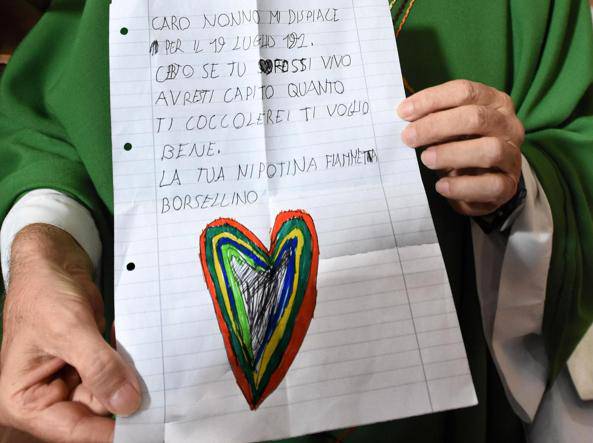 CARO NONNO MI DISPIACE
PER IL 19 LUGLIO 192.
CETO SE TU FOSSI VIVO
AVRETI CAPITO QUANTO
TI COCCOLEREI TI VOGLIO
BENE.
LA TUA NIPOTINA FIAMMETTA
BORSELLINO